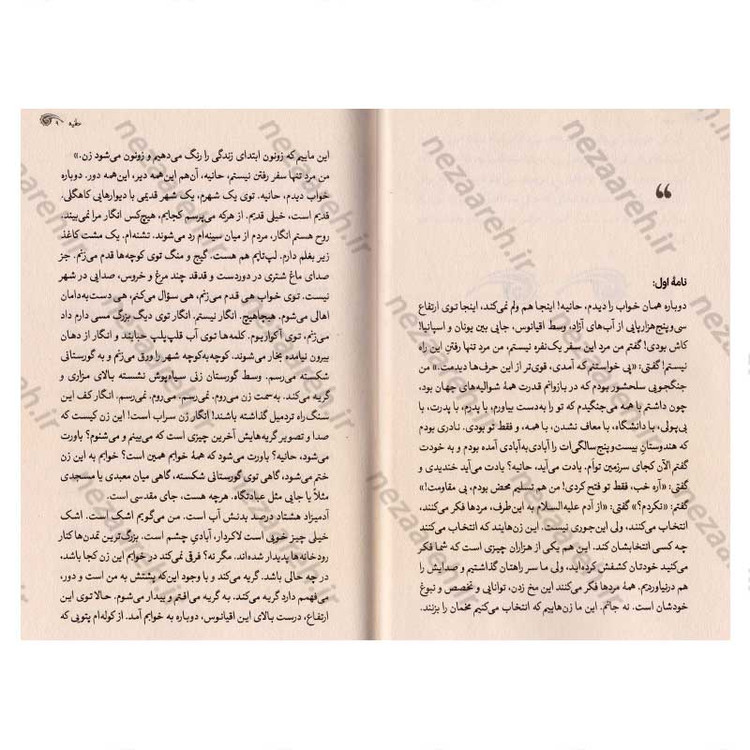 نامهٔ اول:
دوباره همان خواب را دیدم، حانیه! اینجا هم ولم نمی‌کند، اینجا توی ارتفاع
سی‌وپنج‌هزارپایی از آب‌های آزاد، وسط اقیانوس، جایی بین یونان و اسپانیا!
کاش بودی! گفتم من مرد این سفر یک‌نفره نیستم، من مرد تنها رفتن این راه
نیستم! گفتی: «بی خواستنم که آمدی، قوی‌تر از این حرف‌ها دیدمت.» من
جنگجویی سلحشور بودم که در بازوانم قدرت همهٔ شوالیه‌های جهان بود،
چون داشتم با همه می‌جنگیدم که تو را به‌دست بیاورم، با پدرم، با پدرت، با
بی‌پولی، با دانشگاه، با معاف نشدن، با همه، و فقط تو بودی. نادری بودم
که هندوستان بیست‌وپنج‌سالگی‌ات را آبادی‌به‌آبادی آمده بودم و به خودت
گفتم الآن کجای سرزمین توأم. یادت می‌آید، حانیه؟ یادت می‌آید خندیدی و
گفتی: «آره خب، فقط تو فتح کردی! من هم تسلیم محض بودم، بی مقاومت!»
گفتم: «نکردم؟» گفتی: «از آدم علیه‌السلام به این‌طرف، مردها فکر می‌کنند،
انتخاب می‌کنند، ولی این‌جوری نیست. این زن‌هایند که انتخاب می‌کنند
چه کسی انتخابشان کند. این هم یکی از هزاران چیزی است که شما فکر
می‌کنید خودتان کشفش کرده‌اید، ولی ما سر راهتان گذاشتیم و صدایش را
هم درنیاوردیم. همهٔ مردها فکر می‌کنند این مخ زدن، توانایی و تخصص و نبوغ
خودشان است. نه جانم. این ما زن‌هاییم که انتخاب می‌کنیم مخمان را بزنند.
۹
این ماییم که زونون ابتدای زندگی را رنگ می‌دهیم و زونون می‌شود زن.»
من مرد تنها سفر رفتن نیستم، حانیه، آن‌هم این‌همه دیر، این‌همه دور. دوباره
خواب دیدم، حانیه. توی یک شهرم، یک شهر قدیمی با دیوارهایی کاهگلی.
قدیم است، خیلی قدیم. از هرکه می‌پرسم کجایم، هیچ‌کس انگار مرا نمی‌بیند.
روح هستم انگار، مردم از میان سینه‌ام رد می‌شوند. تشنه‌ام. یک مشت کاغذ
زیر بغلم دارم. لپ‌تاپم هم هست. گیج و منگ توی کوچه‌ها قدم می‌زنم. جز
صدای ماغ شتری در دوردست و قدقد چند مرغ و خروس، صدایی در شهر
نیست. توی خواب هی قدم می‌زنم، هی سؤال می‌کنم، هی دست‌به‌دامان
اهالی می‌شوم. هیجاهیج. انگار نیستم. انگار توی دیگ بزرگ مسی دارم داد
می‌زنم، توی آکواریوم. کلمه‌ها توی آب قلپ‌قلپ حبابند و انگار از دهان
بیرون نیامده بخار می‌شوند. کوچه‌به‌کوچه شهر را ورق می‌زنم و به گورستانی
شکسته می‌رسم. وسط گورستان زنی سیاه‌پوش نشسته بالای مزاری و
گریه می‌کند. به‌سمت زن می‌روم. نمی‌رسم. می‌روم. نمی‌رسم. انگار کف این
سنگ‌راه تردمیل گذاشته باشند! انگار زن سراب است! این زن کیست که
صدا و تصویر گریه‌هایش آخرین چیزی است که می‌بینم و می‌شنوم؟ باورت
می‌شود، حانیه؟ باورت می‌شود که همهٔ خوابم همین است؟ خوابم به این زن
ختم می‌شود، گاهی توی گورستانی شکسته، گاهی میان معبدی یا مسجدی
مثلاً یا جایی مثل عبادتگاه. هرچه هست، جای مقدسی است.
آدمیزاد هشتاد درصد بدنش آب است. من می‌گویم اشک است. اشک
خیلی چیز خوبی است لاکردار، آبادیِ چشم است. بزرگ‌ترین تمدن‌ها کنار
رودخانه‌ها پدیدار شده‌اند. مگر نه؟ فرقی نمی‌کند در خوابم این زن کجا باشد،
در چه حالی باشد. گریه می‌کند و با وجود این‌که پشتش به من است و دور،
می‌فهمم دارد گریه می‌کند. به گریه می‌افتم و بیدار می‌شوم. حالا توی این
ارتفاع، درست بالای این اقیانوس، دوباره به خوابم آمد. از کوله‌ام پتویی که
nezaareh.ir